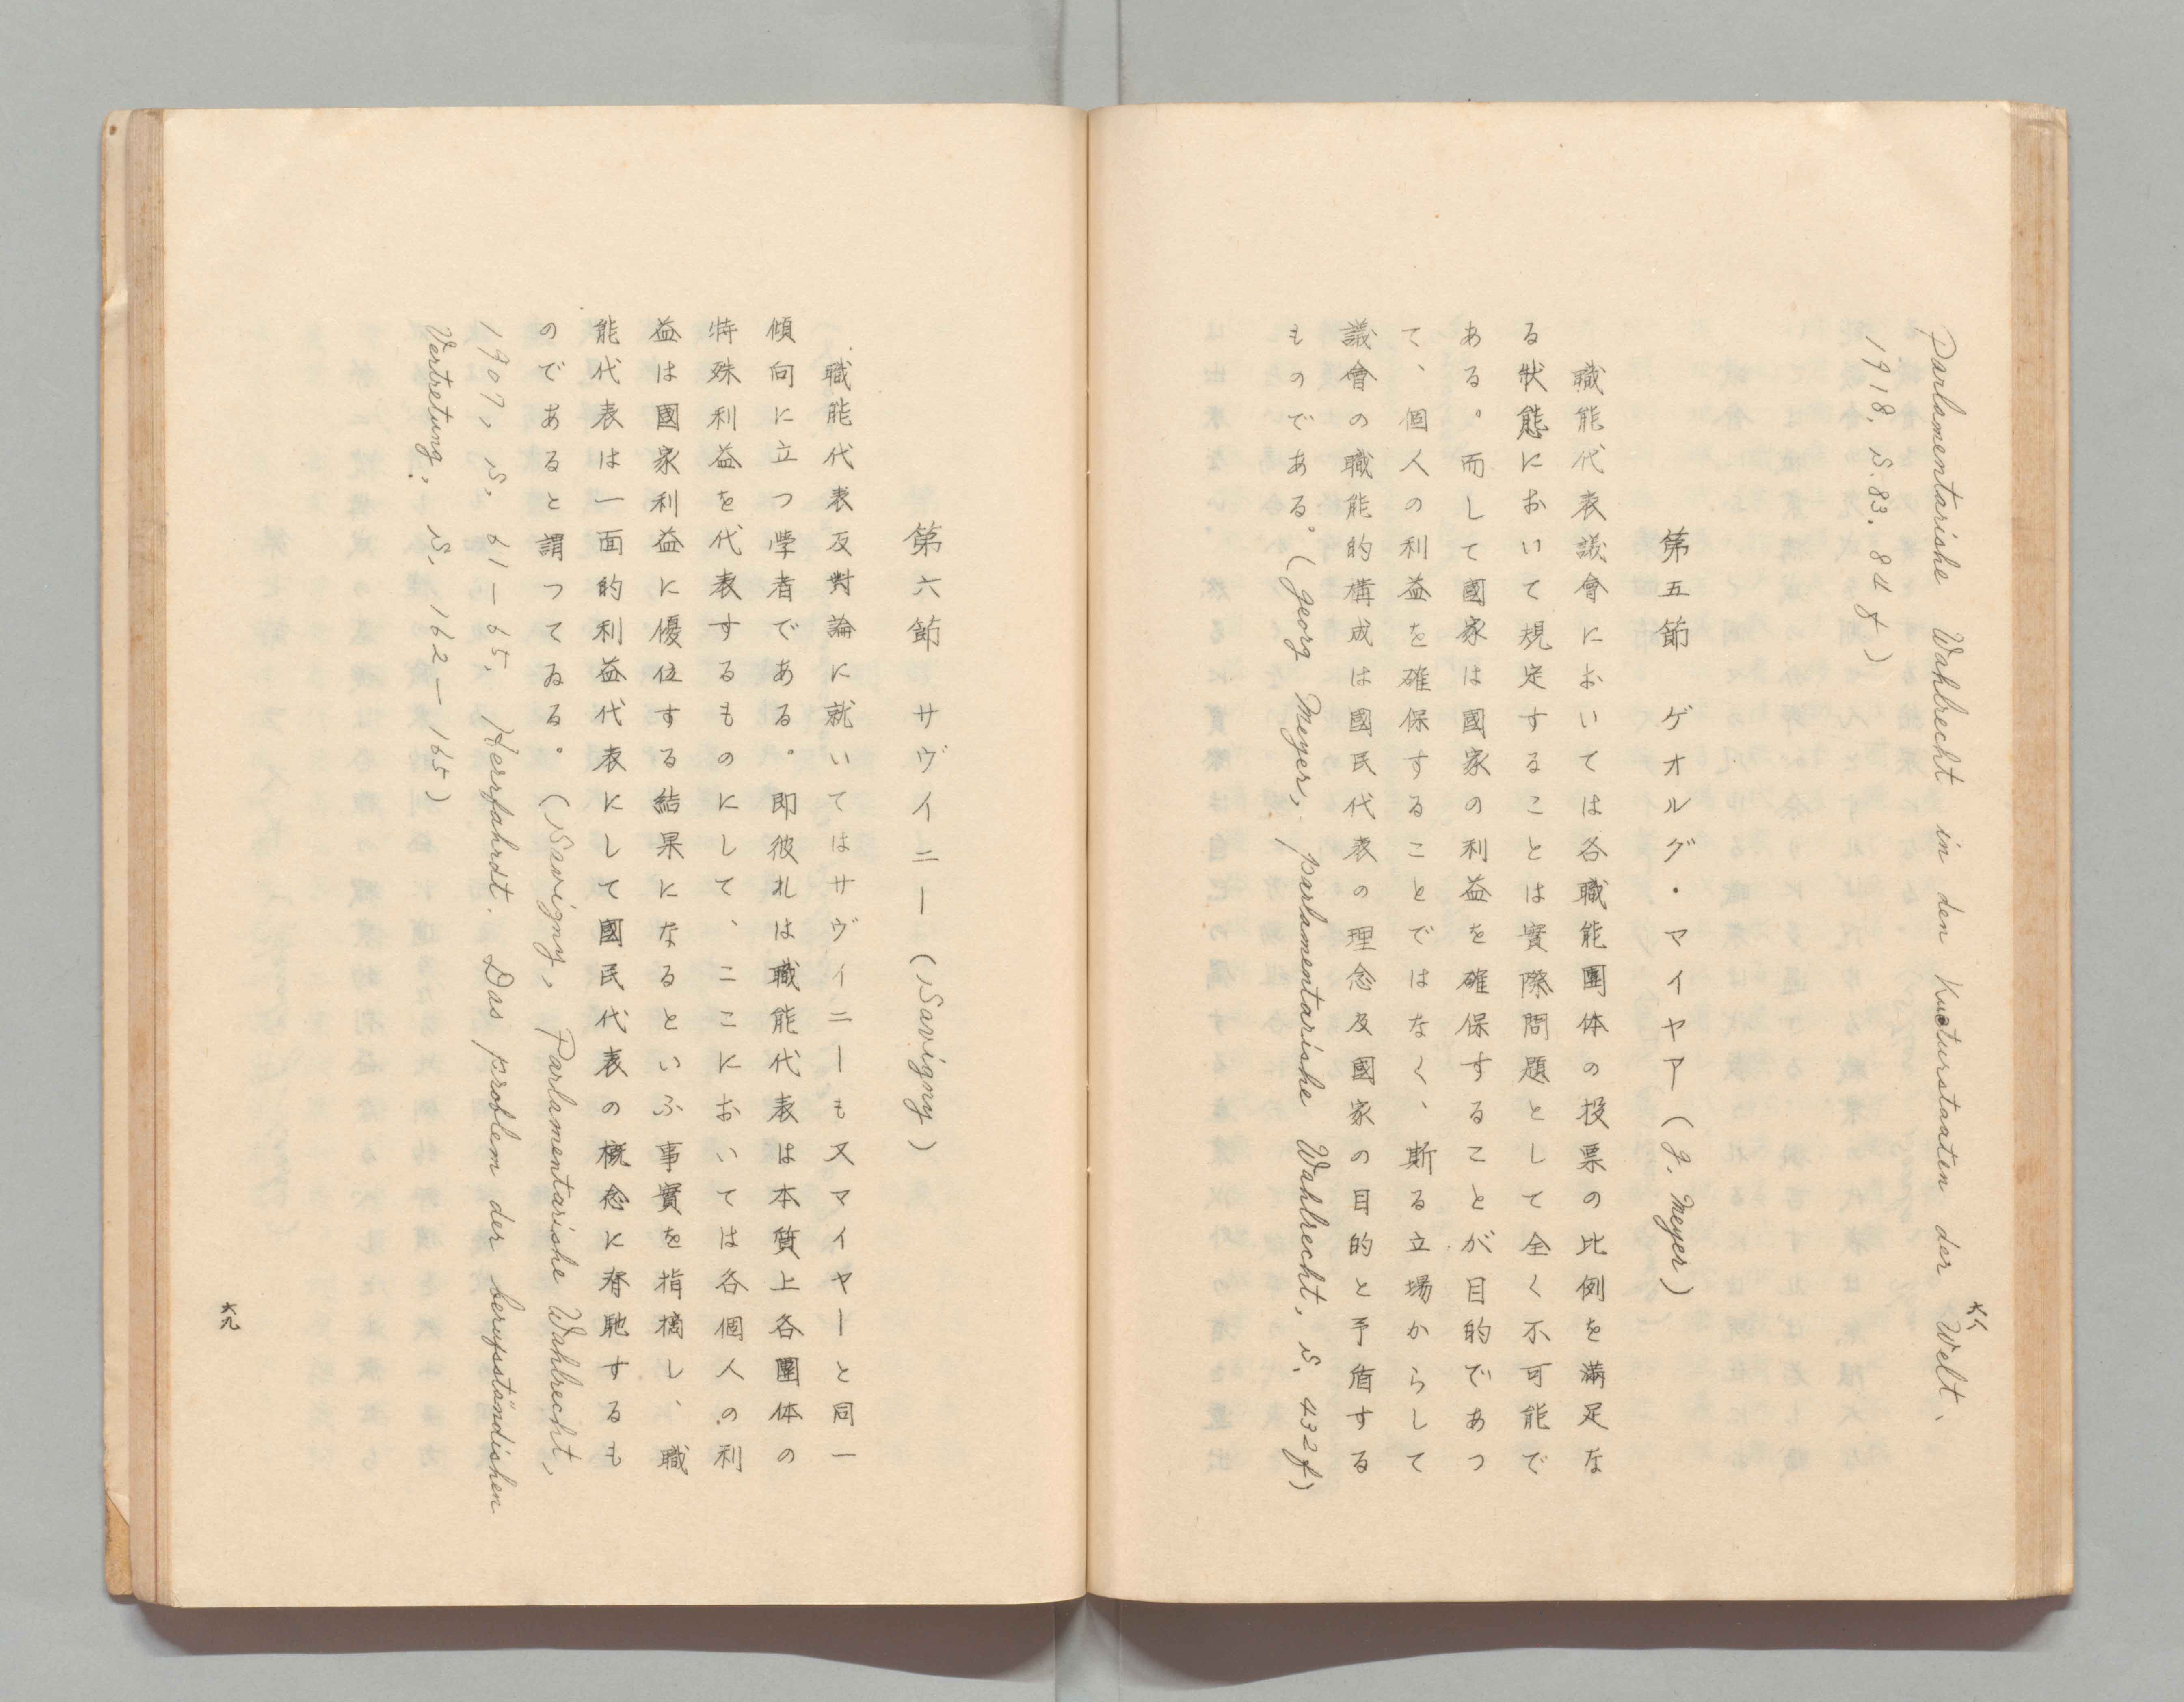 Parlamentarishe Wahlrecht in den Kulturstaaten der Welt、
1918, S.83. 84 f）
第五節　ゲオルグ・マイヤアー（G. Meyer）
職能代表議會においては各職能團体の投票の比例を滿足な
る状態において規定することは實際問題として全く不可能で
ある。而して國家は國家の利益を確保することが目的であつ
て、個人の利益を確保することではなく、斯る立場からして
議會の職能的構成は國民代表の理念及國家の目的と予盾する
ものである。（Georg Meyer, parlamentarishe Wahlrecht, S. 432f）
六八
第六節　サヴイニー（Savigny）
職能代表反對論に就いてはサヴイニーも又マイヤーと同一
傾向に立つ学者である。即彼れは職能代表は本質上各團体の
特殊利益を代表するものにして、ここにおいては各個人の利
益は國家利益に優位する結果になるといふ事實を指摘し、職
能代表は一面的利益代表にして國民代表の概念に背馳するも
のであると謂つてゐる。（Savigny, Parlamentarishe Wahlrecht,
1907, S, 61—65, Herrfahrdt. Das problem der berufsständishen
Vertretung, S, 162—165）
六九